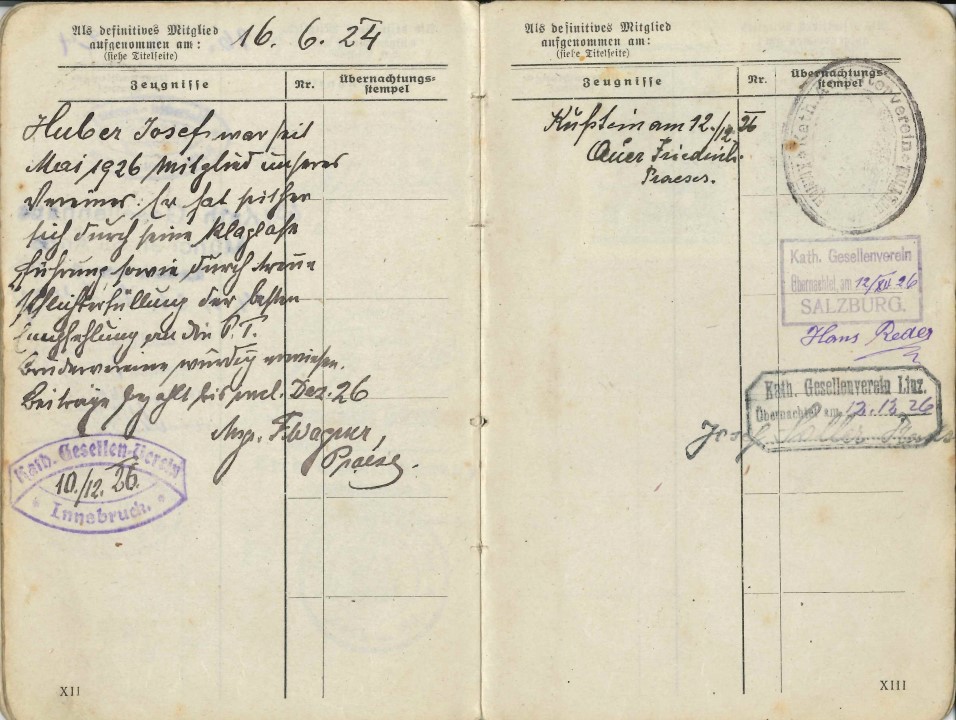 Als definitives Mitglied
aufgenommen am: 16. 6. 24
(siehe Titelseite)
Zeugnisse Nr. Übernachtungs-
stempel
Huber Josef war seit
Mai 1926 Mitglied unseres
Vereines. Er hat seither
sich durch seine klaglose
Führung sowie durch treue
Pflichterfüllung der besten
Empfehlung an die P.T.
Brudervereine würdig erwiesen.
Beiträge gezahlt bis incl. Dez. 26
Msgr. F. Wagner,
Praeses.
Kath. Gesellen-Verein
10./12. 26.
Innsbruck.
XII
Als definitives Mitglied
aufgenommen am:
(siehe Titelseite)
Zeugnisse Nr. Übernachtungs-
stempel
Kufstein am 12./12. 26
Auer Friedrich.
Praeses.
Kath. Gesellenverein
Übernachtet am 12/XII 26
SALZBURG.
Hans Reder
Kath. Gesellenverein Linz.
Übernachtet am 12.12.26
Josef
XIII